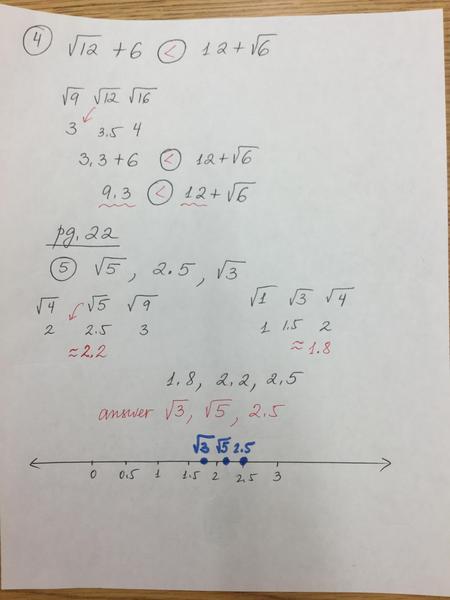 ④ √12 + 6 < 12 + √6
√9 √12 √16
3 3.5 4
3,3 + 6 < 12 + √6
9.3 < 12 + √6
pg. 22
⑤ √5, 2.5, √3
√4 √5 √9 √1 √3 √4
2 2.5 3 1 1.5 2
≈2.2 ≈1.8
1.8, 2.2, 2.5
answer √3, √5, 2.5
√3 √5 2.5
0 0.5 1 1.5 2 2.5 3